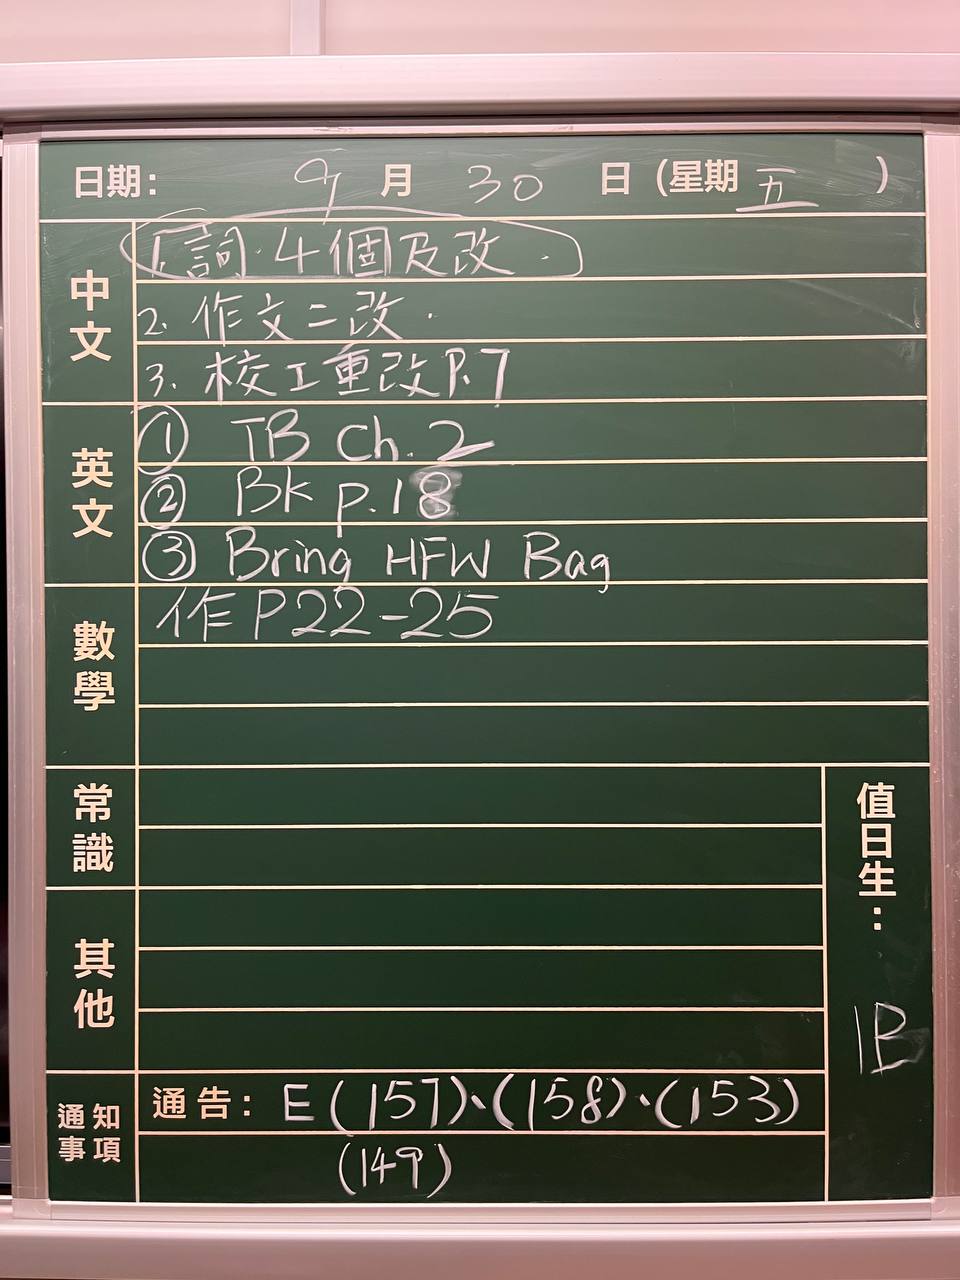 日期： 9 月 30 日 (星期 五 )
中文
1. 詞.4個及改.
2. 作文二改.
3. 校工重改P.7
英文
① TB Ch. 2
② BK p.18
③ Bring HFW Bag
數學
作P22-25
常識
其他
值日生：
1B
通知事項
通告： E(157)、(158)、(153)
(149)